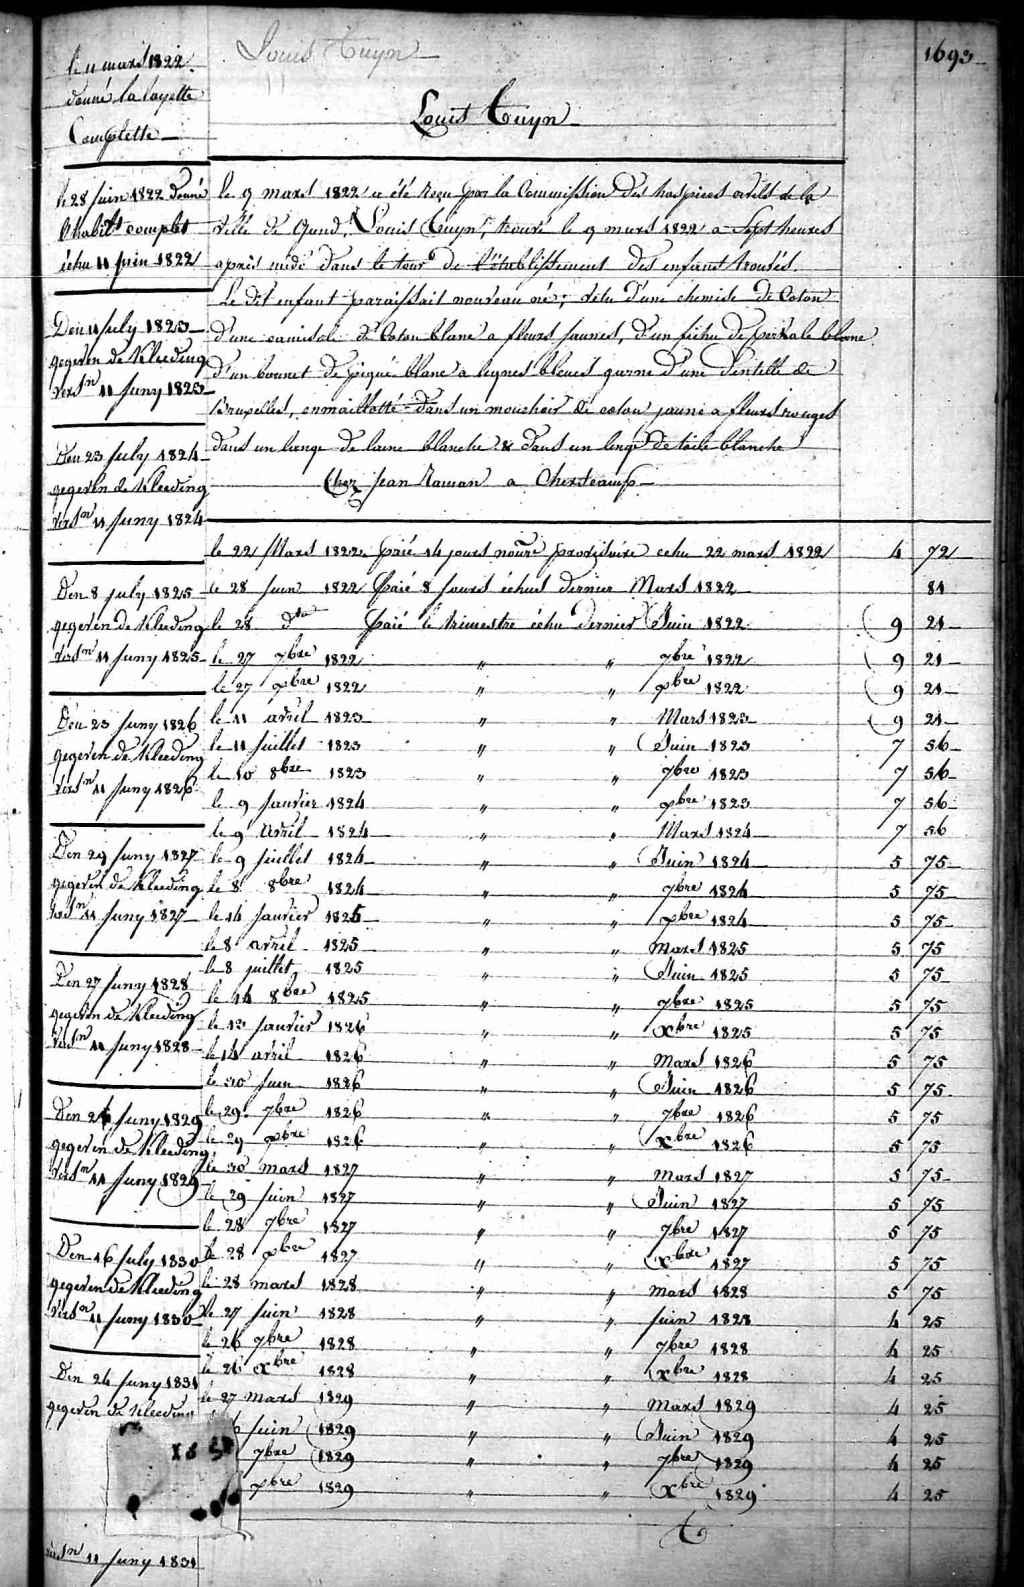 1693
Louis Tuyn
le 11 mars 1822
donné la layette
Complette
Louis Tuyn
le 28 juin 1822 donné
l'habilt complet
échu 11 juin 1822
Den 11 July 1823
gegeven de Kleeding
versn 11 Juny 1823
Den 23 July 1824
gegeven de Kleeding
versn 11 Juny 1824
Den 8 july 1825
gegeven de Kleeding
versn 11 Juny 1825
Den 23 Juny 1826
gegeven de Kleeding
versn 11 Juny 1826
Den 29 Juny 1827
gegeven de Kleeding
versn 11 Juny 1827
Den 27 Juny 1828
gegeven de Kleeding
versn 11 Juny 1828
Den 26 Juny 1829
gegeven de Kleeding
versn 11 Juny 1829
Den 16 July 1830
gegeven de Kleeding
versn 11 Juny 1830
Den 24 Juny 1831
gegeven de Kleeding
versn 11 Juny 1831
le 9 mars 1822 a été reçu par la Commission des hospices civils de la
ville de Gand, Louis Tuyn, trouvé le 9 mars 1822 a Sept heures
après midi dans le tour de l'établissement des enfant trouvés.
Le dit enfant paraissait nouveau né; vêtu d'une chemise de Coton
d'une camisole de Coton blanc a fleurs jaunes, d'un fichu de perkale blanc
d'un bonnet de piqué blanc a lignes bleues garnie d'une dentelle de
Bruxelles, enmaillotté dans un mouchoir de coton jaune a fleurs rouges
dans un lange de laine blanche & dans un linge de toile blanche
Chez Jean Raman a Cherscamp
le 22 Mars 1822 Paié 14 jours nourre provisoire echu 22 mars 1822 4 72
le 28 juin 1822 Paié 8 jours échus dernier Mars 1822 81
le 28 dto Paié le trimestre échu dernier Juin 1822 9 21
le 27 7bre 1822 " " 7bre 1822 9 21
le 27 xbre 1822 " " xbre 1822 9 21
le 11 avril 1823 " " Mars 1823 9 21
le 11 juillet 1823 " " Juin 1823 7 56
le 10 8bre 1823 " " 7bre 1823 7 56
le 9 janvier 1824 " " xbre 1823 7 56
le 9 avril 1824 " " Mars 1824 7 56
le 9 juillet 1824 " " Juin 1824 5 75
le 8 8bre 1824 " " 7bre 1824 5 75
le 14 janvier 1825 " " xbre 1824 5 75
le 8 avril 1825 " " Mars 1825 5 75
le 8 juillet 1825 " " Juin 1825 5 75
le 14 8bre 1825 " " 7bre 1825 5 75
le 13 janvier 1826 " " xbre 1825 5 75
le 14 avril 1826 " " Mars 1826 5 75
le 30 juin 1826 " " Juin 1826 5 75
le 29 7bre 1826 " " 7bre 1826 5 75
le 29 xbre 1826 " " xbre 1826 5 75
le 30 mars 1827 " " mars 1827 5 75
le 29 juin 1827 " " Juin 1827 5 75
le 28 7bre 1827 " " 7bre 1827 5 75
le 28 xbre 1827 " " xbre 1827 5 75
le 28 mars 1828 " " mars 1828 5 75
le 27 juin 1828 " " juin 1828 4 25
le 26 7bre 1828 " " 7bre 1828 4 25
le 26 xbre 1828 " " xbre 1828 4 25
le 27 mars 1829 " " Mars 1829 4 25
juin 1829 " " Juin 1829 4 25
7bre 1829 " " 7bre 1829 4 25
xbre 1829 " " xbre 1829 4 25